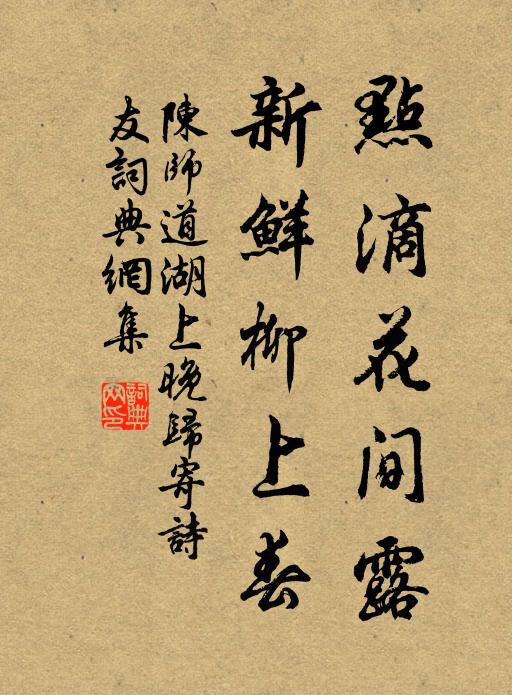 點滴花間露
新鮮柳上春
陳師道湖上晚歸寄詩
友詞典網集
詞典
网印